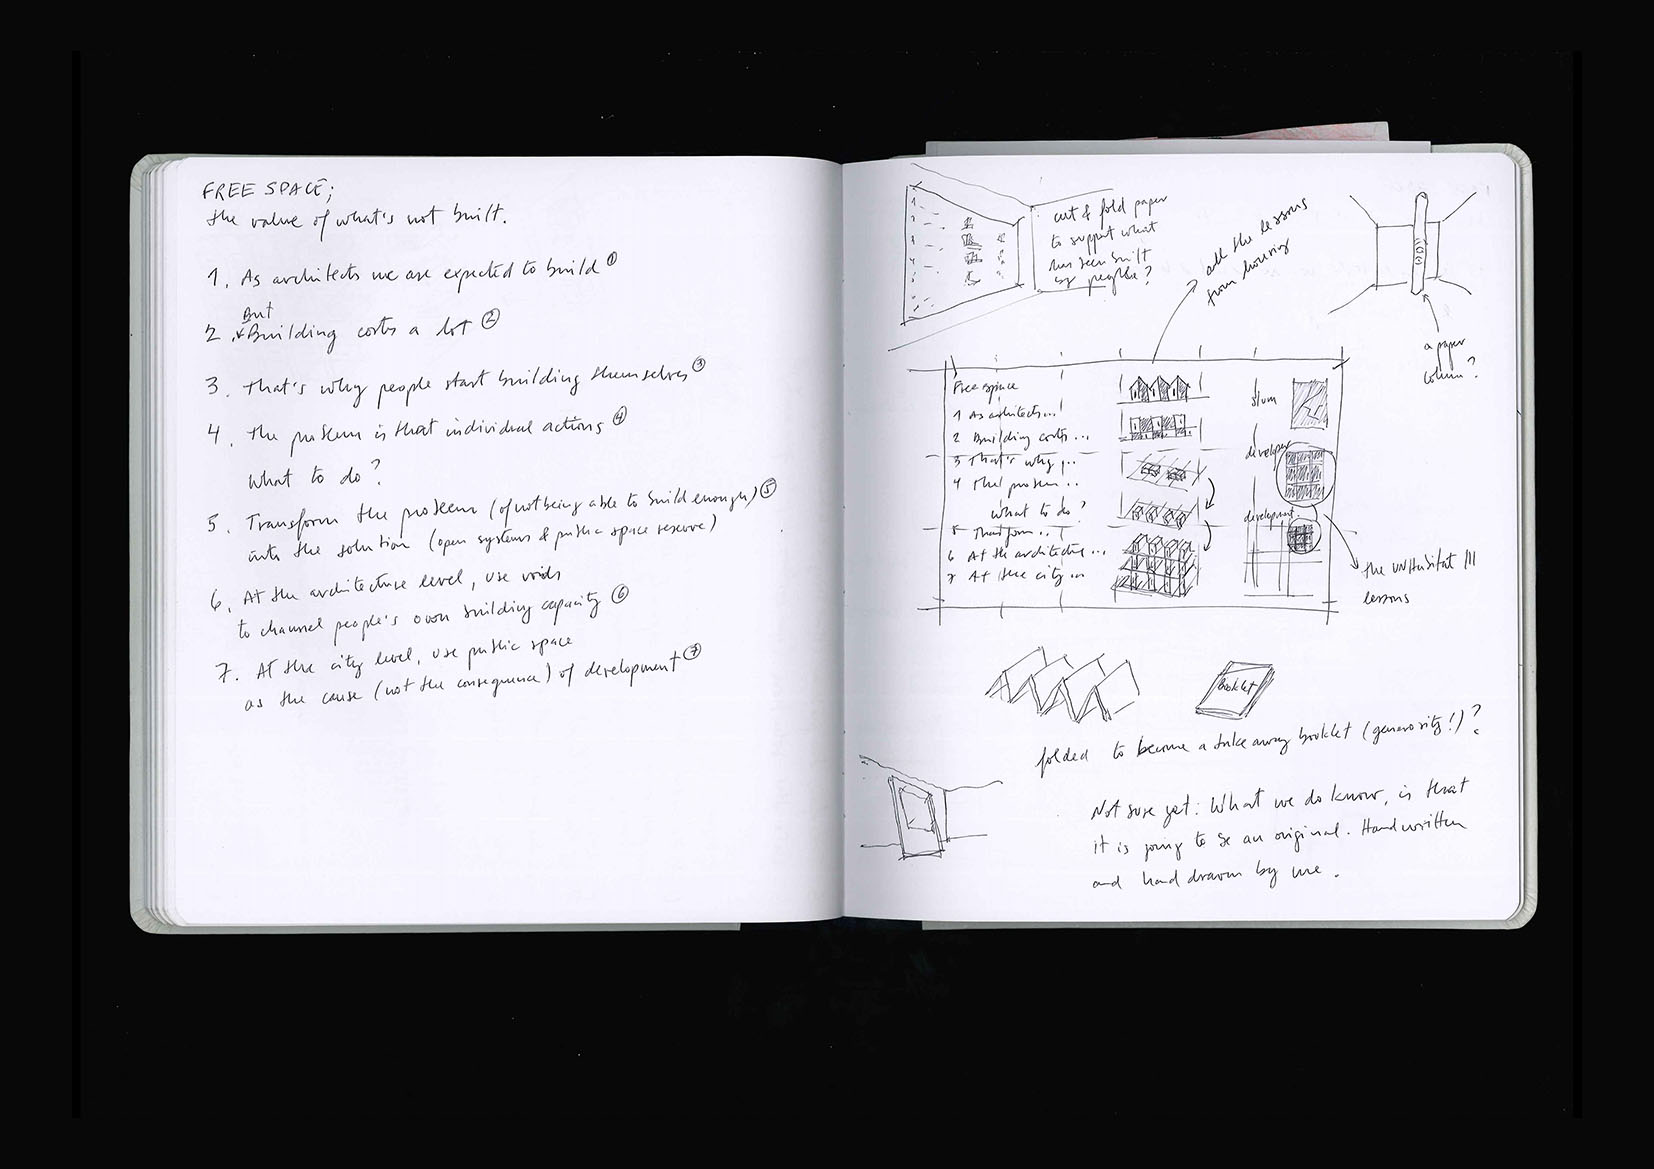 FREE SPACE;
the value of what's not built.
1. As architects we are expected to build ①
But
2. Building costs a lot ②
3. That's why people start building themselves ③
4. The problem is that individual actions ④
What to do?
5. Transform the problem (of not being able to build enough) ⑤
into the solution (open systems & public space reserve)
6. At the architecture level, use voids
to channel people's own building capacity ⑥
7. At the city level, use public space
as the cause (not the consequence) of development ⑦
cut & fold paper
to support what
has been built
by people?
all the lessons
from housing
a paper
column?
Free space
1 As architects...
2 Building costs...
3 That's why...
4 The problem...
What to do?
5 Transform...
6 At the architecture...
7 At the city...
slum
developer
development
the UN Habitat III
lessons
booklet
folded to become a take away booklet (generosity!)?
Not sure yet: What we do know, is that
it is going to be an original. Handwritten
and hand drawn by me.